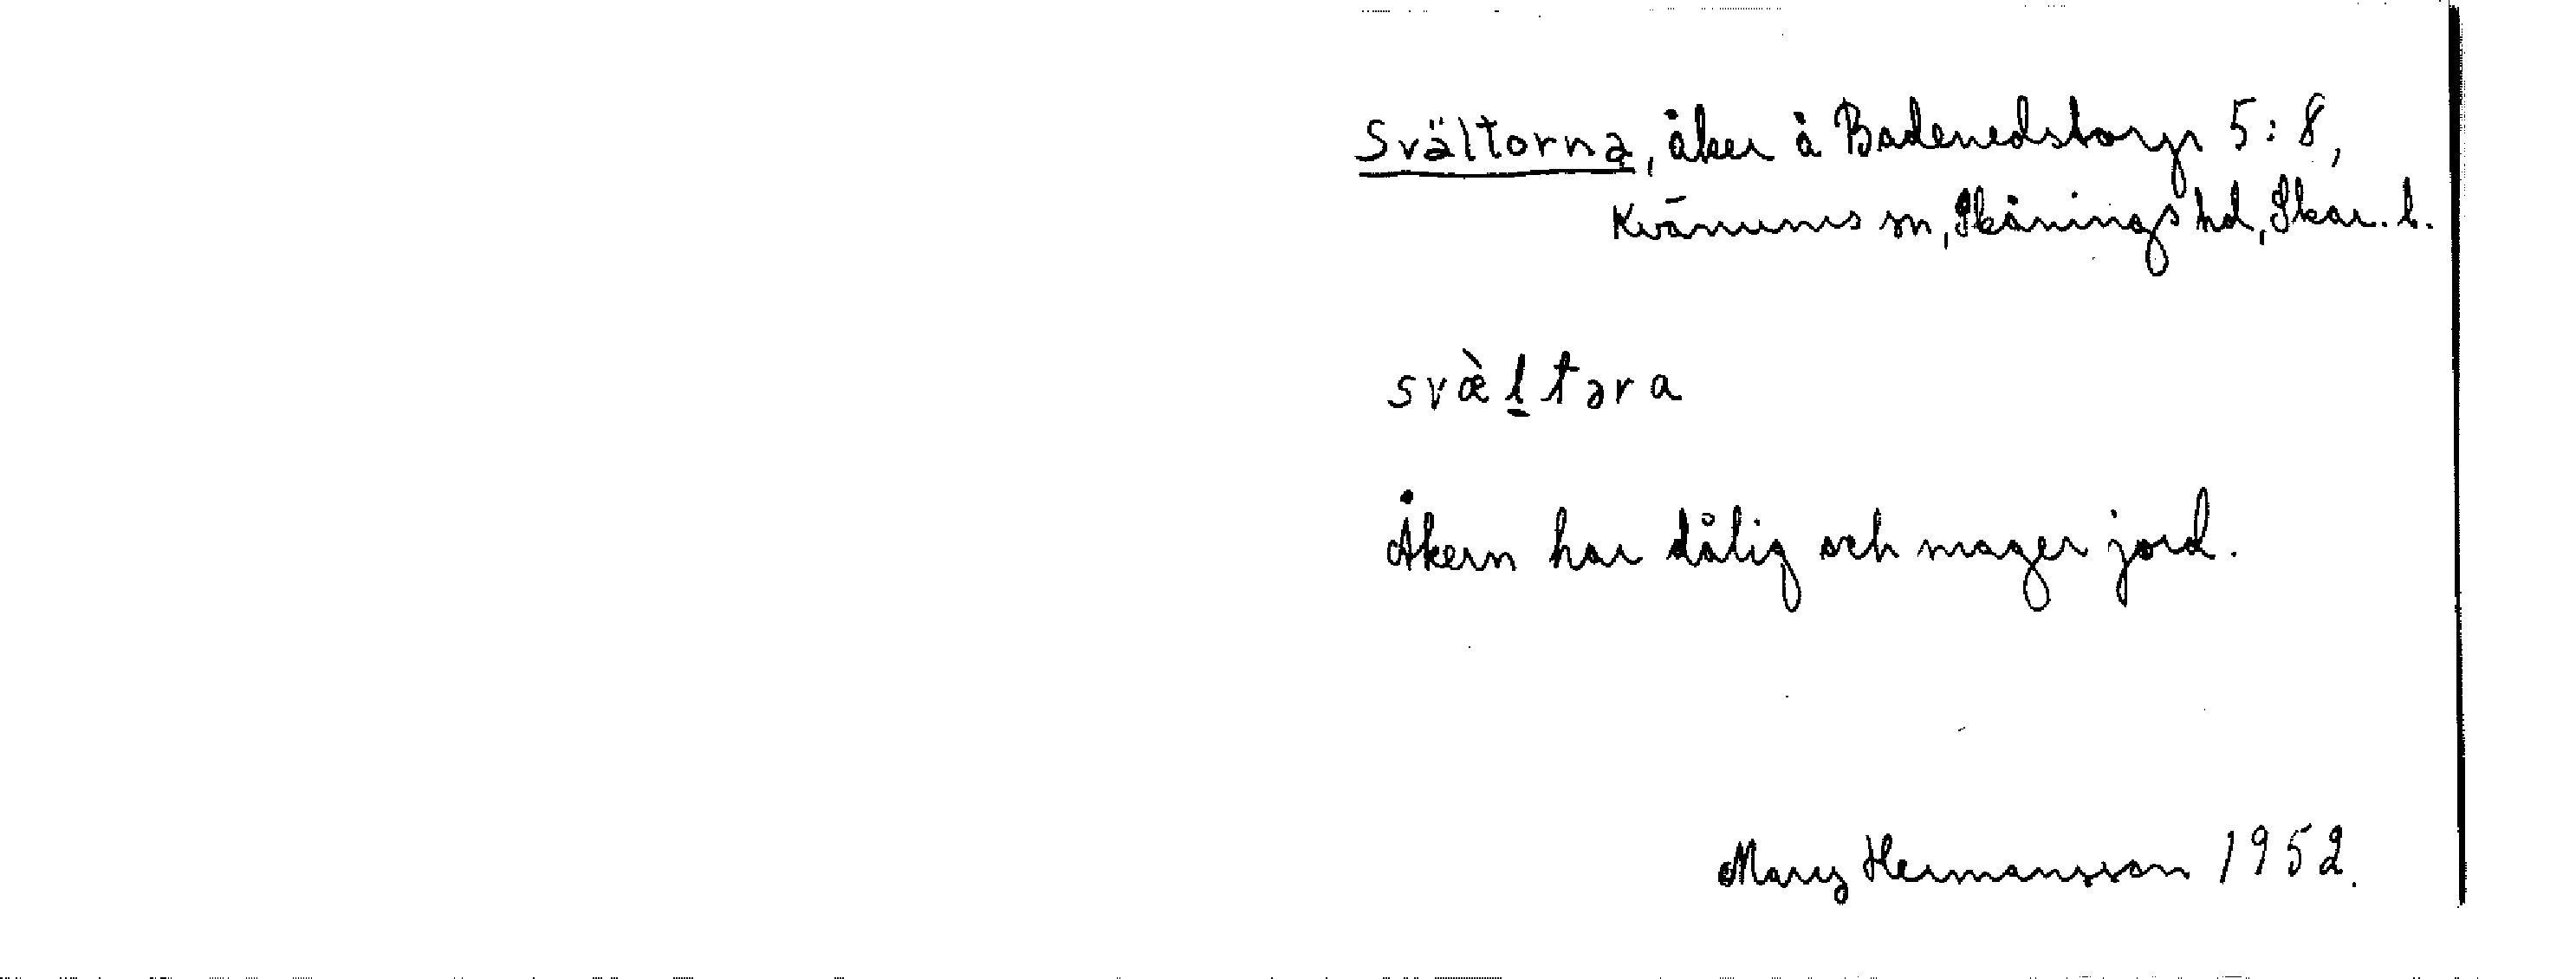 Svältorna, åker å Badenedstorp 5:8,
Kvänums sn, Skånings hd, Skar. l.
svæ̀l̠təra
Åkern har dålig och mager jord.
Mary Hermansson 1952.